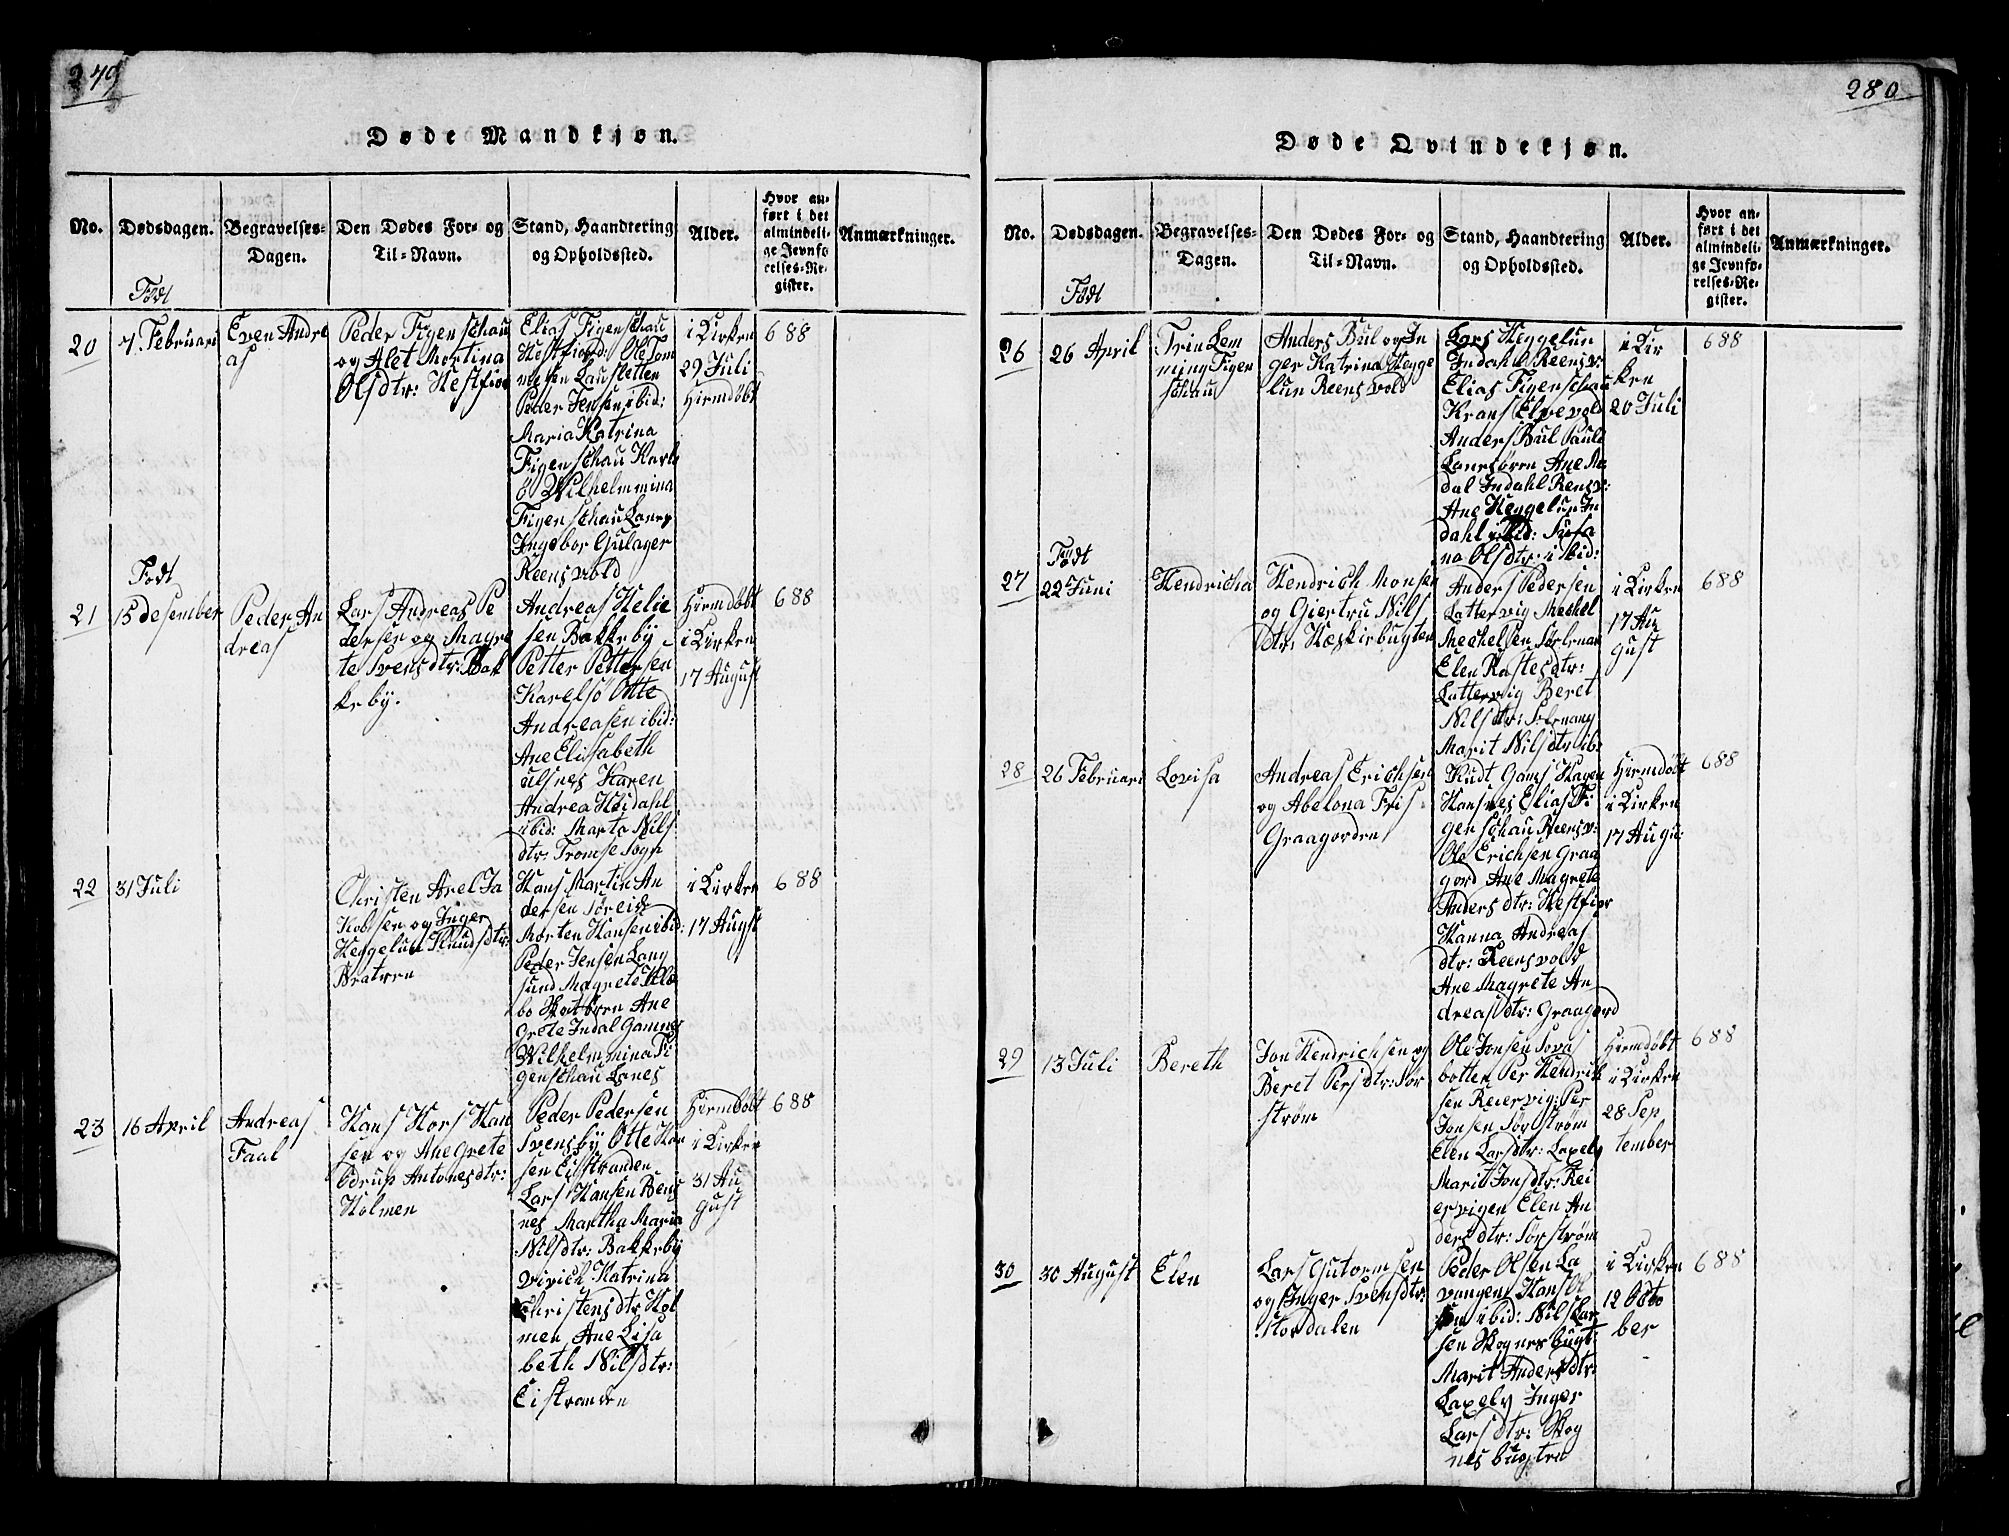 279
Døde Mandkjøn.
No.
Dødsdagen.
Begravelses-
Dagen.
Den Dødes For- og
Til-Navn.
Stand, Haandtering
og Opholdssted.
Alder.
Hvor an-
ført i det
almindeli-
ge Jevnfø-
relses-Re-
gister.
Anmærkninger.
Født
20
7. Februari
Even Andre
as
Peder Figenschau
og Alet Martina
Olsdtr: Hestfior
Elias Figenschau
Hestfiord: Ole Tom
mesen Lausletten
Peder Jensen ibid:
Maria Katrina
Figenschau Karls
ö Wilhelmmina
Figenschau Lanes
Ingebor Gulager
Reensvold
i Kirken
29 Juli
Hiemdøbt
688
Født
21
15 desember
Peder An
dreas
Lars Andreas Pe
dersen og Magre
te Svensdtr: Bak
keby.
Andreas Helie
sen Bakkeby
Petter Pettersen
Karelsö Otte
Andreasen ibid:
Ane Elisabeth
ulsnes Karen
Andrea Heidahl
ibid: Marta Nils
dtr: Tromse Sogn
Hiemdøbt
i Kirken
17 August
688
22
31 Juli
Christen Axel Ja
kobsen og Inger
Heggelun Knudsdtr:
Bratren
Hans Martin An
dersen Søreid
Morten Hansen ibid:
Peder Jensen Lang
sund Magrete Kle
bo Skatøren Ane
Grete Indal Gamnes
Wilhelmmina Fi
genschau Lanes
i Kirken
17 Augst
688
23
16 April
Andreas
Faal
Hans Hors Han
sen og Ane Grete
Edrup Antonesdtr:
Holmen
Peder Pedersen
Svensby Otte Han
sen Eistranden
Lars Hansen Bens
nes Martha Maria
Nilsdtr: Bakkeby
Katrina
Christensdtr Hol
men Ane Lisa
beth Nilsdtr:
Eistranden
Hiemdøbt
i Kirken
31 Au
gust
688
280
Døde Qvindekjøn.
No.
Dødsdagen.
Begravelses-
Dagen.
Den Dødes For- og
Til-Navn.
Stand, Haandtering
og Opholdssted.
Alder.
Hvor an-
ført i det
almindeli-
ge Jevnfø-
relses-Re-
gister.
Anmærkninger.
Født
26
26 April
Trin Lem
ming Figen
schau
Anders Bul og In
ger Katrina Hegge
lun Reensvold
Lars Heggelun
Indahl Reensv:
Elias Figenschau
Krans Elvevold
Anders Bul Pauli
Lanesøren Ane Ma
dal Indahl Rensv:
Ane Heggelun In
dahl ibid: Susa
na Olsdtr: ibid:
i Kir
ken
20 Juli
688
Født
27
22 Juni
Hendricha
Hendrich Monsen
og Giertru Nils
dtr: Kæskirbugten
Anders Pedersen
Lattervig Meskel
Mechelsen Sørlenan
Elen Rastesdtr:
Lattervig Beret
Nilsdtr: Sørlenang
Marit Nilsdtr ib:
i Kirken
17 Au
gust
688
28
26 Februari
Lovisa
Andreas Erichsen
og Abelona Fris
Graagorden
Knudt Gams Hagen
Hansnes Elias Fi
genschau Reensv:
Ole Erichsen Graa
gord Ane Magrete
Andersdtr: Hestfior
Hanna Andreas
dtr: Reensvold
Ane Magrete An
dreasdtr: Graagord
Hiemdøbt
i Kirken
17 Augu:
688
29
13 Juli
Bereth
Jon Hendrichsen og
Beret Persdtr: Sør
strøm
Ole Jonsen Sovas
botten Per Hendrik
sen Reiervig: Per
Jonsen Sørstrøm
Elen Larsdtr: Laxelv
Marit Jonsdtr: Rei
ervigen Elen An
dersdtr: Sørstrøm
Hiemdøbt
i Kirken
28 Sep
tember
688
30
30 August
Elen
Lars Gutormsen
og Inger Svensdtr:
Stordalen
Peder Olsen La
vangen Hans Ol
sen ibid: Nils Lar
sen Skognesbugt:
Marit Andersdtr:
Laxelv Inger
Larsdtr: Skog
nesbugten
i Kirken
12 Octo
ber
688